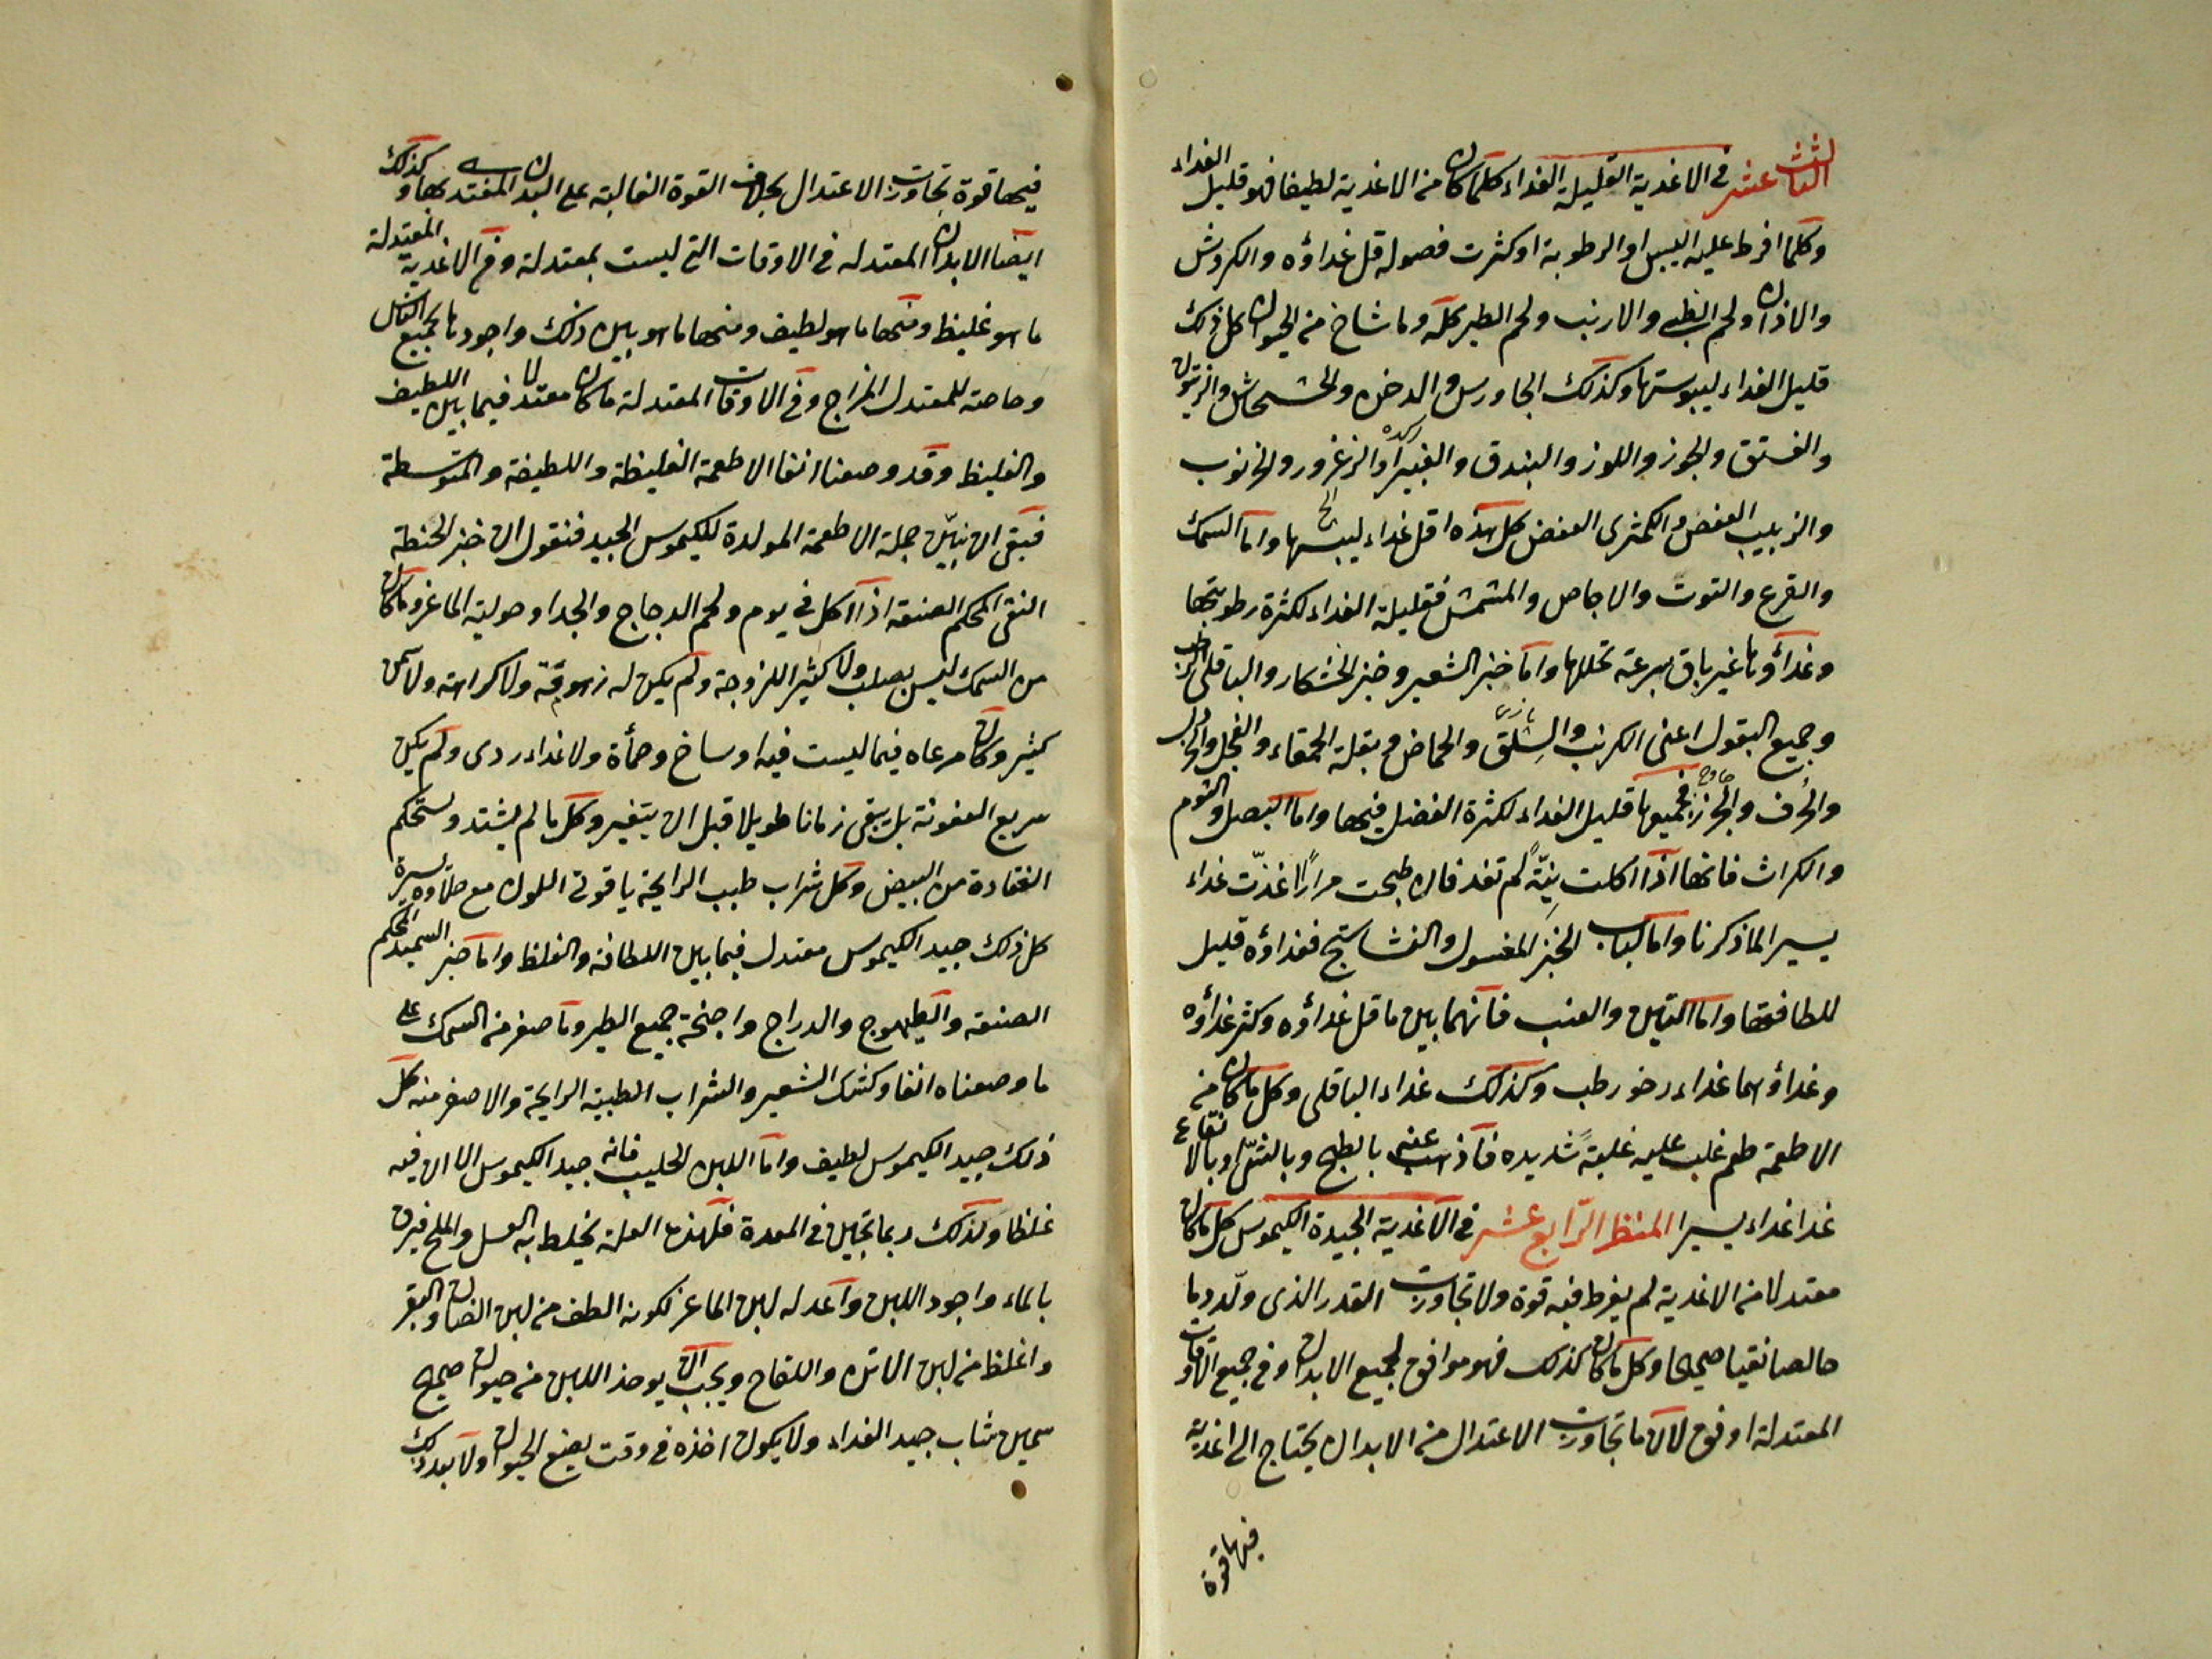 الثالث عشر في الاغدية القليلة الغداء كلما كان من الاغدية لطيفا فهو قليل الغداء
وكلما افرط عليه اليبس او الرطوبة او كثرت فصوله قل غداؤه والكروش
والاذان ولحم الظبي والارنب ولحم الطير كله وما شاخ من الحيوان كل ذلك
قليل الغداء ليبوستها وكذلك الجاورس والدخن والخشخاش والزيتون
والفستق والجوز واللوز والبندق والغبيرا والزعرور والخرنوب
والزبيب العفص والكمثرى العفص كل هذه اقل غداء ليبسها واما السمك
والقرع والتوت والاجاص والمشمش فقليلة الغداء لكثرة رطوبتها
وغداؤها غير باق بسرعة تحللها واما خبز الشعير وخبز الخشكار والباقلى الرطب
وجميع البقول اعنى الكرنب والسلق والحماض وبقلة الحمقاء والفجل والخردل
والحرف والجزر فجميعها قليل الغداء لكثرة الفضل فيها واما البصل والثوم
والكراث فانها اذا اكلت نيّة لم تغد فان طبخت مرارًا غذّت غداء
يسير الما ذكرنا واما لباب الخبز المغسول والنشاستج فغداؤه قليل
للطافتها واما التين والعنب فانهما بين ما قل غداؤه وكثر غداؤه
وغداؤهما غداء رخو رطب وكذلك غداء الباقلى وكل ما كان من
الاطعمة طعم غلب عليه غلبةً شديده فاذهب عنه بالطبخ وبالشىّ وبالانقاع
غدا غداء يسيرا المنظر الرابع عشر في الاغدية الجيدة الكيموس كل ما كان
معتدلا من الاغدية لم يفرط فيه قوة ولا تجاوزت القدر الذى ولّد دما
خالصا نقيا صحيحا وكل ما كان كذلك فهو موافق لجميع الابدان وفي جميع الاوقات
المعتدلة اوفق لان ما تجاوزت الاعتدال من الابدان يحتاج الى اغدية
فيها قوة
فيها قوة تجاوزت الاعتدال بخلاف القوة الغالبة على البدن المغتدى بها وكذلك
ايضا الابدان المعتدله في الاوقات التي ليست بمعتدلة وفي الاغدية المعتدلة
ما هو غليظ ومنها ما هو لطيف ومنها ما هو بين ذلك واجودها لجميع الناس
وخاصة للمعتدل المزاج وفي الاوقات المعتدلة ما كان معتدلا فيما بين اللطيف
والغليظ وقد وصفنا انفا الاطعمة الغليظة واللطيفة والمتوسطة
فبقى ان نبيّن جملة الاطعمة المولدة للكيموس الجيد فنقول ان خبز الحنطة
النقى المحكم الصنعة اذا اكل في يوم ولحم الدجاج والجدا وحولية الماعز وما كان
من السمك ليس بصلب ولا كثير اللزوجة ولم يكن له زهوقة ولا كراهة ولا سمن
كثير وكان مرعاه فيما ليست فيه اوساخ وحمأة ولا غداء ردى ولم يكن
سريع العفونة بل يبقى زمانا طويلا قبل ان يتغير وكل ما لم يشتد ويستحكم
انعقاده من البيض وكل شراب طيب الرايحة ياقوتى اللون مع حلاوة يسيرة
كل ذلك جيد الكيموس معتدل فيما بين اللطافة والغلظ واما خبز السميد المحكم
الصنعة والطيهوج والدراج واجنحة جميع الطير وما صغر من السمك على
ما وصفناه انفا وكشك الشعير والشراب الطيبة الرايحة والاصفر منه كل
ذلك جيد الكيموس لطيف واما اللبن الحليب فانه جيد الكيموس الا ان فيه
غلظا ولذلك ربما تجبن في المعدة فلهذه العلة يخلط به العسل والملح فيرق
بالماء واجود اللبن واعدله لبن الماعز لكونه الطف من لبن الضان والبقر
واغلظ من لبن الاتن واللقاح ويجب ان يوخذ اللبن من حيوان صحيح
سمين شاب جيد الغداء ولا يكون اخذه في وقت يضع الحيوان ولا بعد ذلك